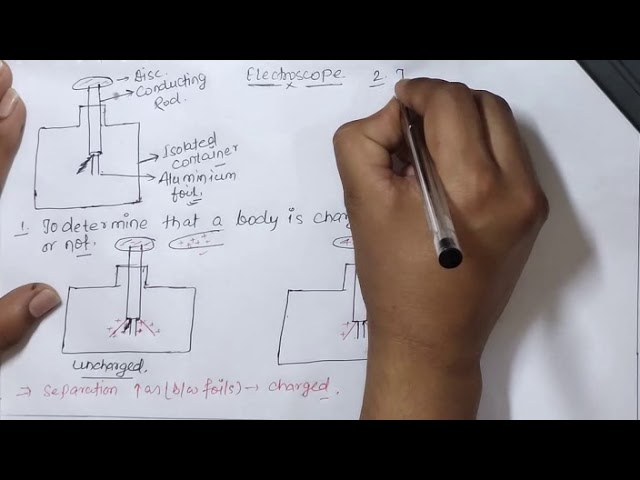 Electroscope. 2.
Disc.
Conducting
Rod.
Isolated
container
Aluminium
foil.
1. To determine that a body is
or not.
uncharged.
⇒ Separation ↑as (b/w foils) → charged.